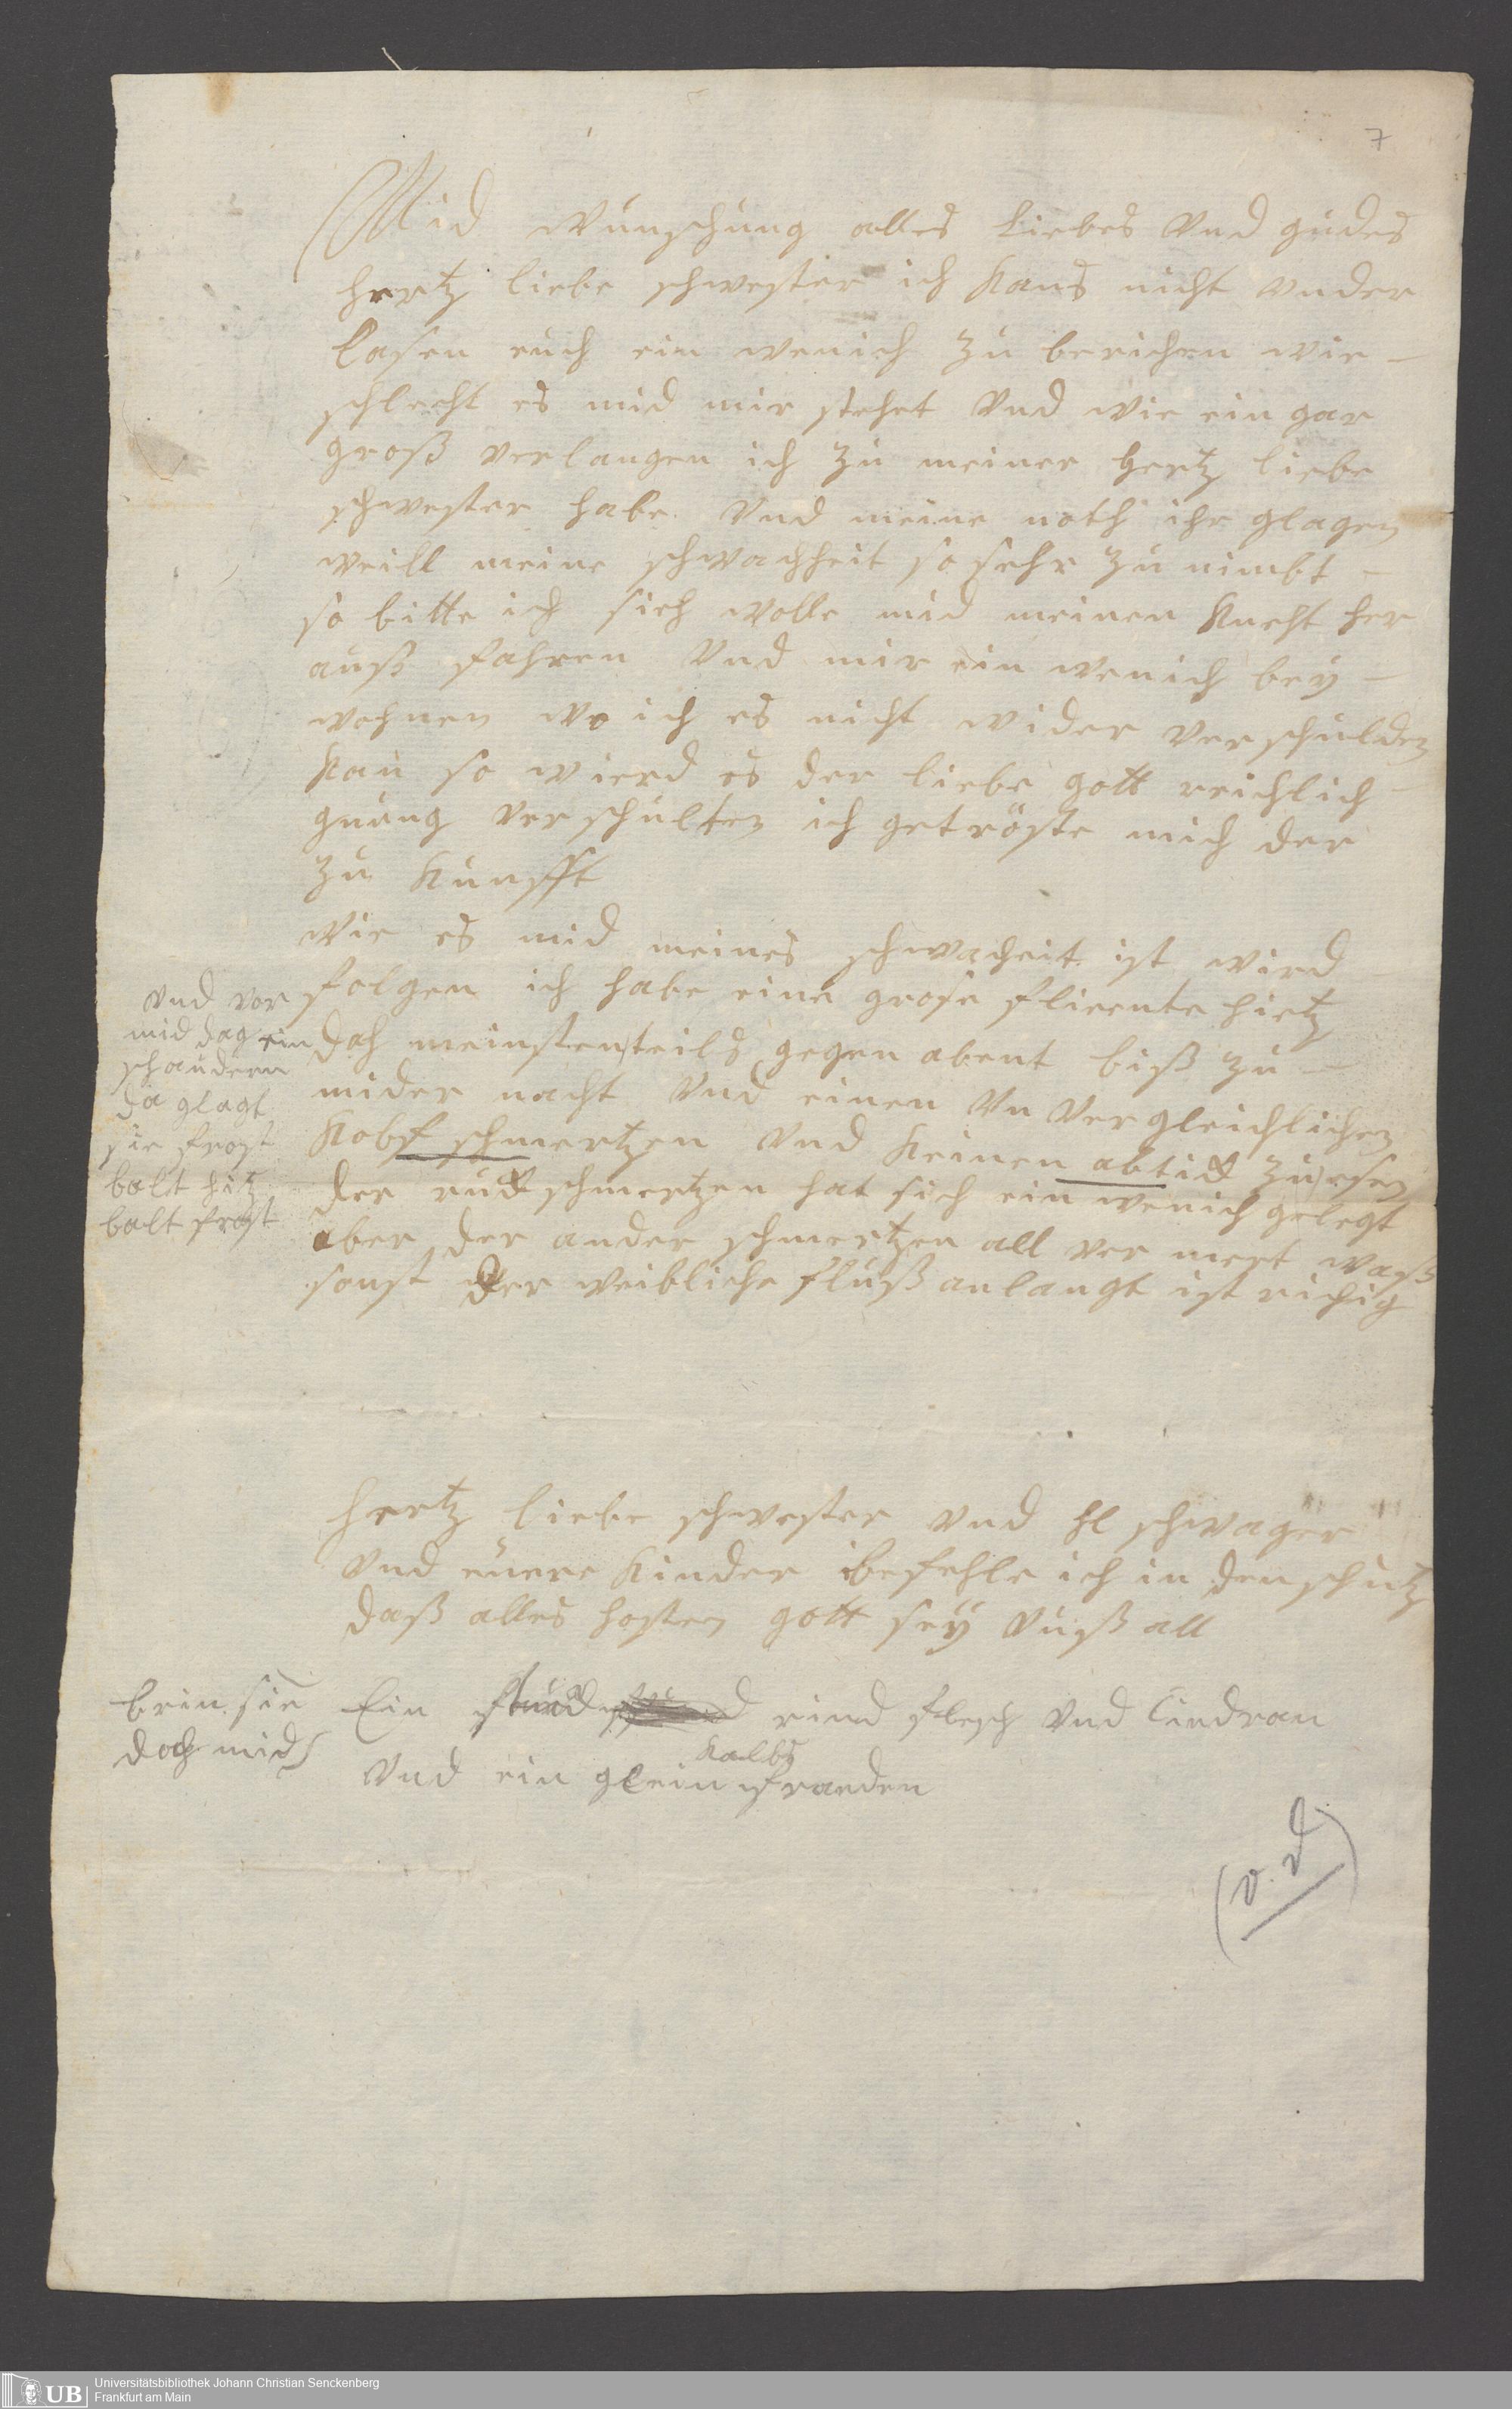 7
Mid wunschung alles Liebes Vnd gudes
hertz liebe schwester ich kans nicht vnder
lasen euch ein wenich zu berichen wie
schlecht es mid mir stehet Vnd wie ein gar
groß verlangen ich zu meiner hertz liebe
schwester habe Vnd meine noth ihr glagen
weill meine schwachheit so sehr zu nimbt
so bitte ich sich wolle mid meinen knecht her
auß fahren Vnd mir ein wenich bey
wohnen wo ich es nicht wider verschulden
kan so wierd es der liebe gott reichlich
gnung verschulten ich getröste mich der
zu kunfft
wie es mid meines schwacheit ist wird
folgen ich habe eine grose flieente hietz
doch meinstenteils gegen abent biß zu
mider nacht Vnd einen vn vergleichlichen
kobf schmertzen Vnd keinen abtid zu esen
der ruck schmertzen hat sich ein wenich gelegt
aber der ander schmertzen all ver mert waß
sonst der weibliche fluß anlangt ist richig
vnd vor
mid dag ein
schaudern
da glagt
sie frost
balt hitz
balt frost
hertz liebe schwester vnd hl schwager
vnd euere kinder befehle ich in den schutz
daß alles hosten gott sey vnß all
brin sie
doch mid
Ein stuck rind flesch vnd
Vnd ein glein kalbs
(v. d)
UB
Universitätsbibliothek Johann Christian Senckenberg
Frankfurt am Main